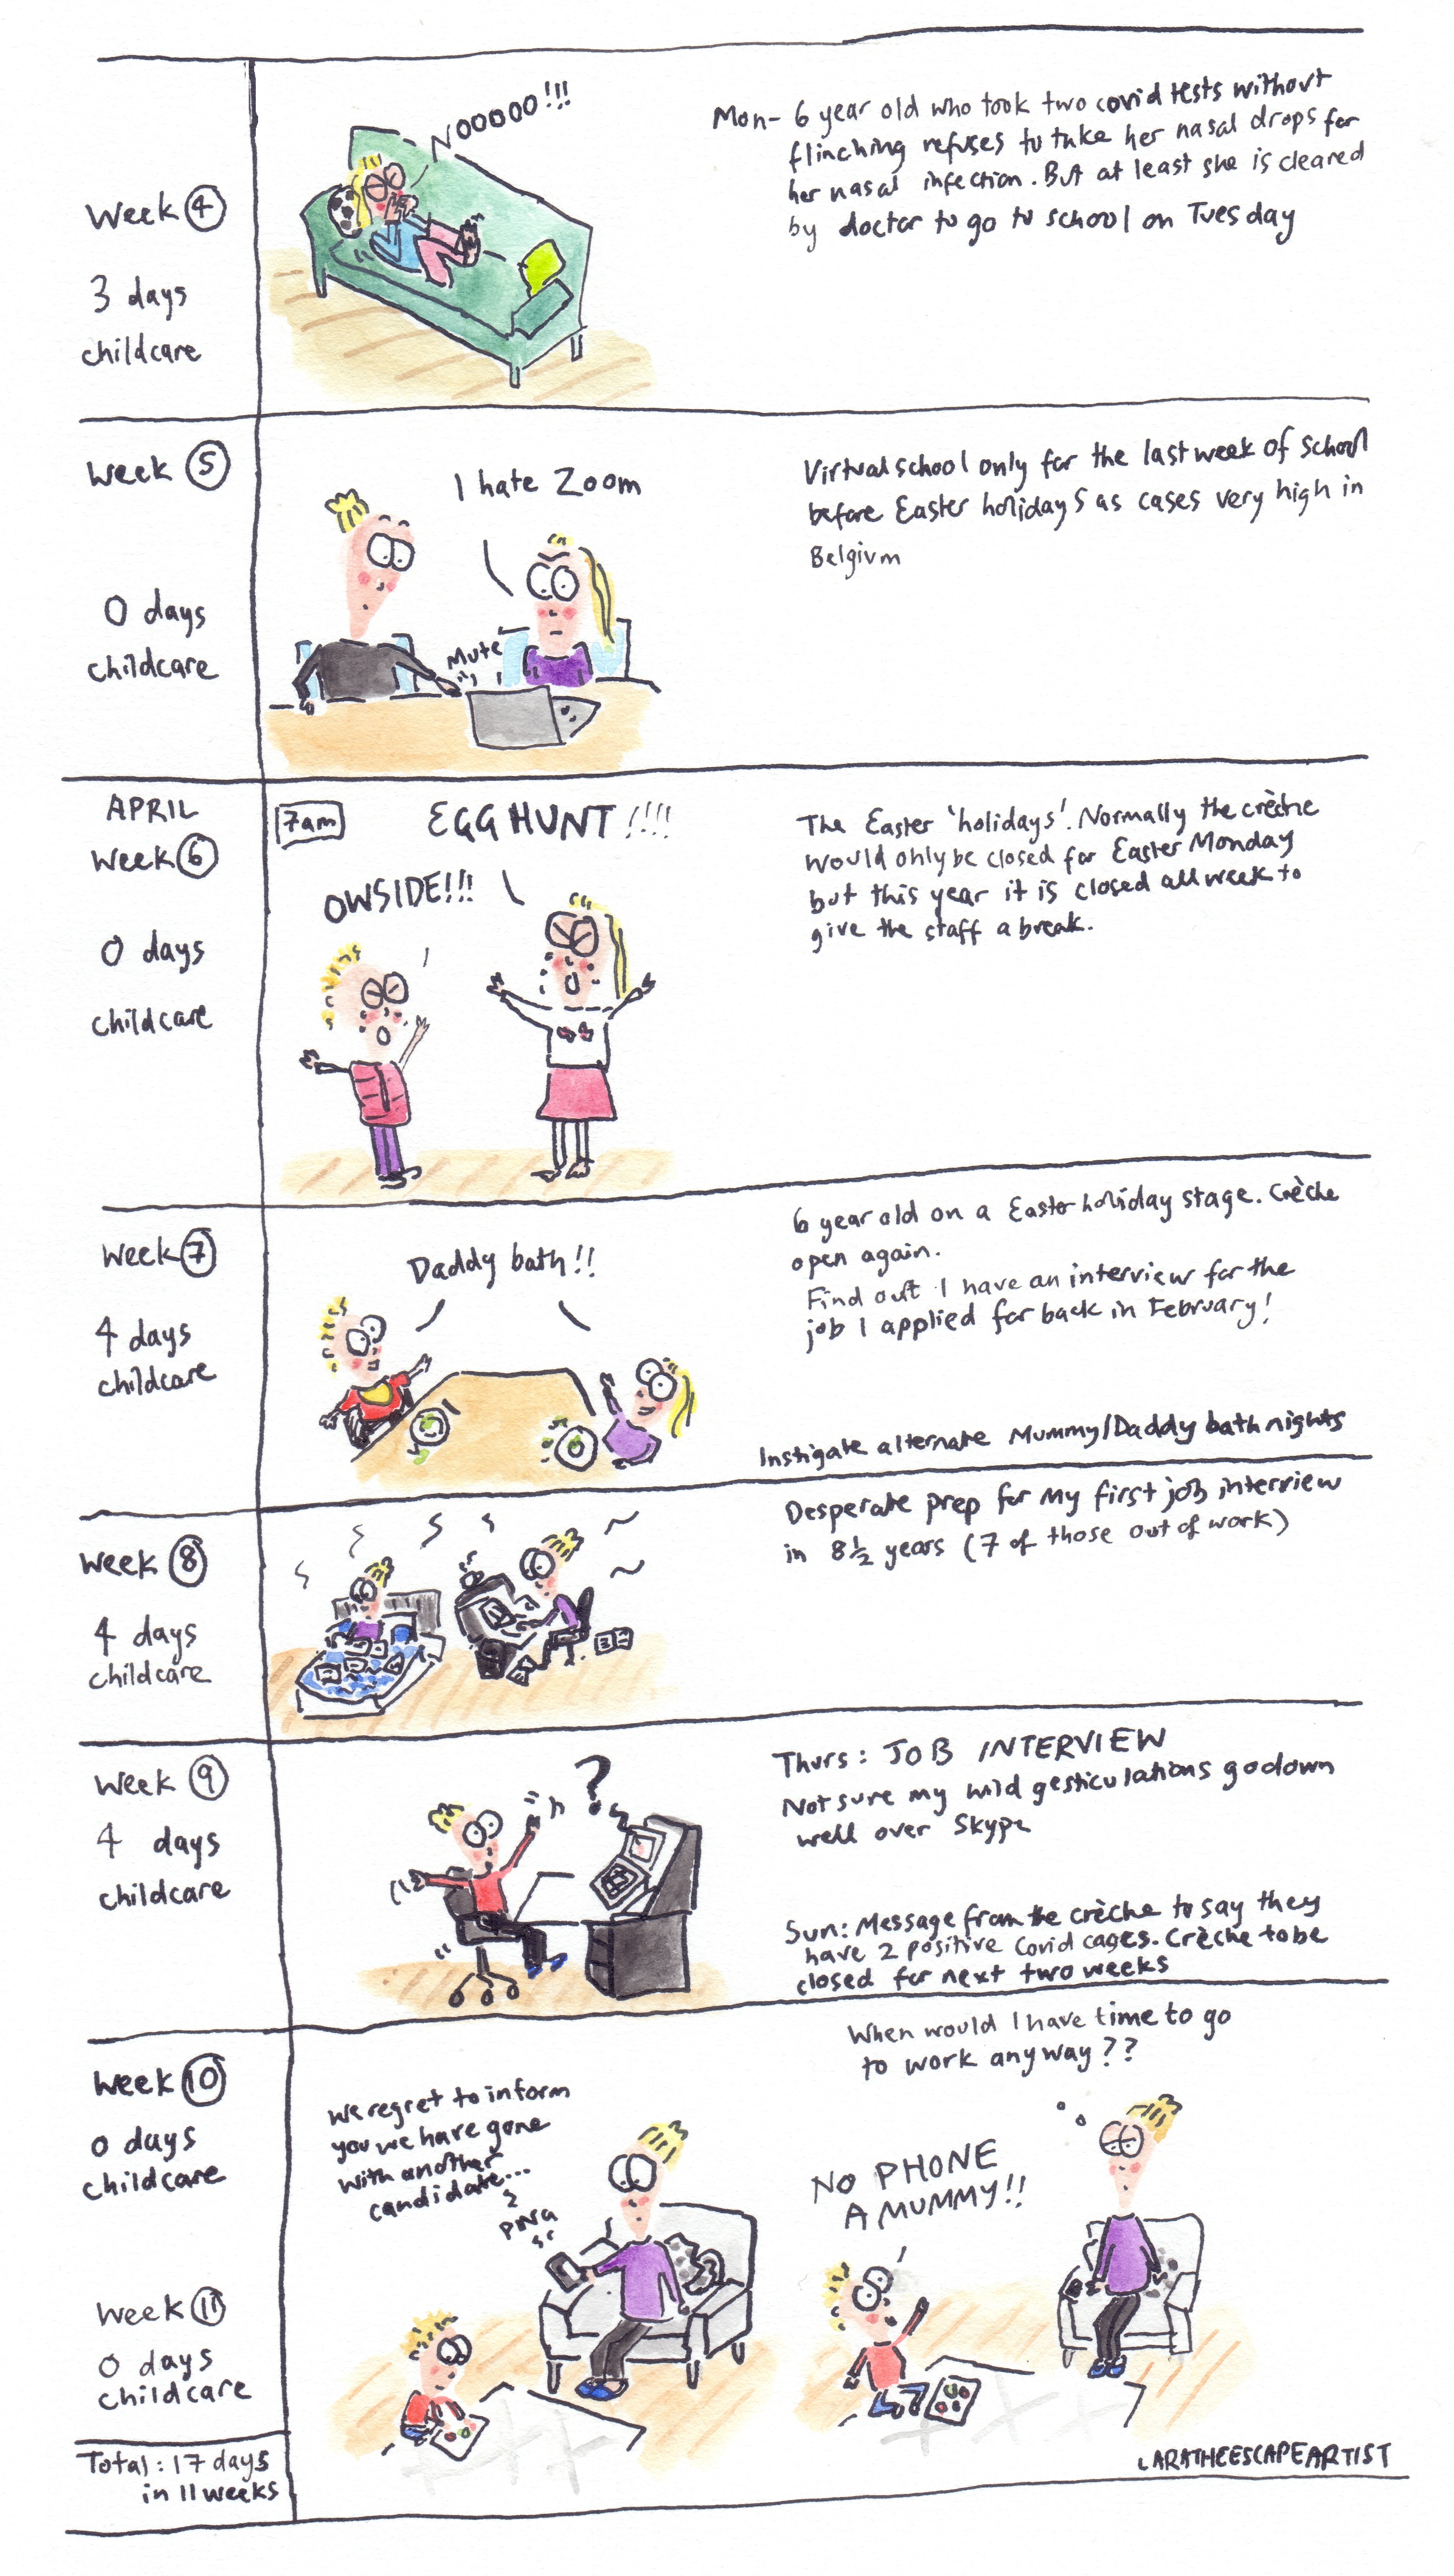 Week 4
3 days
childcare
NOOOOO!!!
Mon- 6 year old who took two covid tests without
flinching refuses to take her nasal drops for
her nasal infection. But at least she is cleared
by doctor to go to school on Tuesday
Week 5
0 days
childcare
I hate Zoom
Mute
Virtual school only for the last week of school
before Easter holidays as cases very high in
Belgium
APRIL
Week 6
0 days
childcare
7am
EGG HUNT!!!!
OWSIDE!!!
The Easter 'holidays'. Normally the crèche
would only be closed for Easter Monday
but this year it is closed all week to
give the staff a break.
Week 7
4 days
childcare
Daddy bath!!
6 year old on a Easter holiday stage. Crèche
open again.
Find out I have an interview for the
job I applied for back in February!
Instigate alternate Mummy/Daddy bath nights
Week 8
4 days
childcare
Desperate prep for my first job interview
in 8½ years (7 of those out of work)
Week 9
4 days
childcare
?
Thurs: JOB INTERVIEW
Not sure my wild gesticulations go down
well over Skype
Sun: Message from the crèche to say they
have 2 positive Covid cases. Crèche to be
closed for next two weeks
Week 10
0 days
childcare
We regret to inform
you we have gone
with another
candidate...
PING
When would I have time to go
to work anyway??
NO PHONE
A MUMMY!!
Week 11
0 days
childcare
Total: 17 days
in 11 weeks
LARATHEESCAPEARTIST